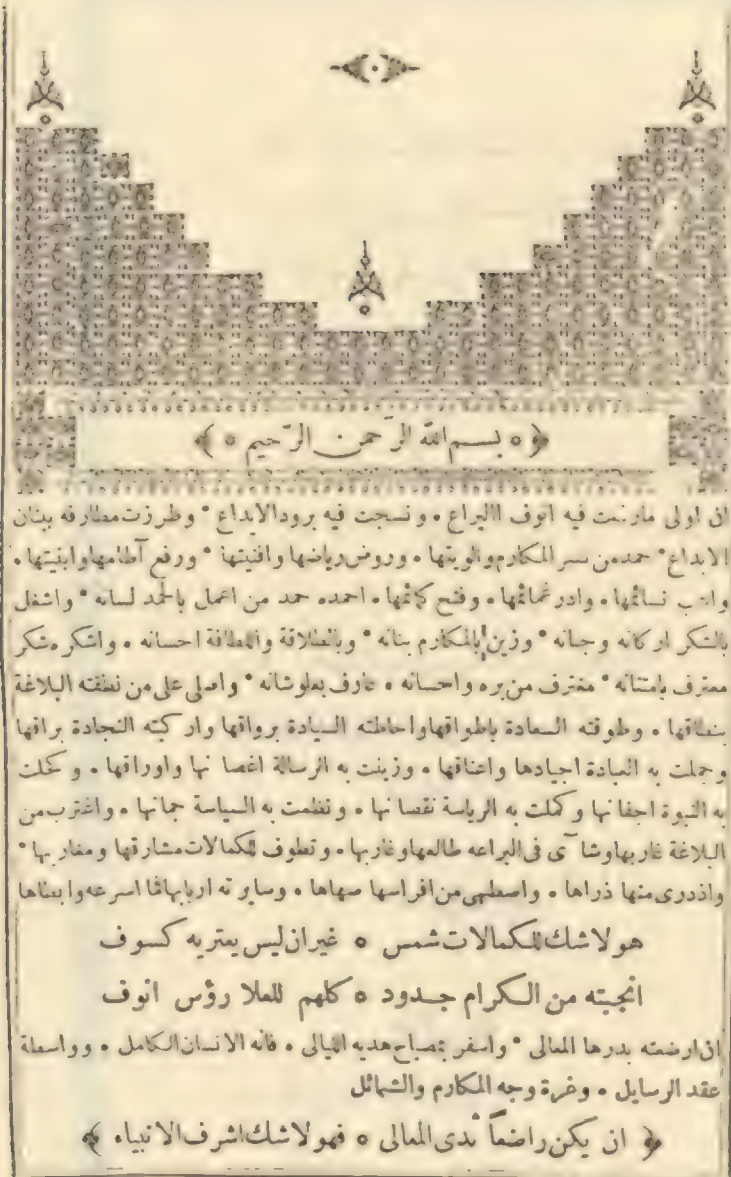 ﴿ ۞ بسم الله الرّحمن الرّحيم ۞ ﴾
ان اولى مارعفت فيه انوف اليراع ۰ ونسجت فيه برود الابداع ۰ وطرزت مطارفه ببنان
الابداع ۰ حمد من نشر المكارم والويتها ۰ وروض رياضها وافنيتها ۰ ورفع آطامها وابنيتها ۰
نسائمها ۰ وادر غمائمها ۰ وفتح كمائمها ۰ احمده حمد من اعمل بالحمد لسانه ۰ واشغل
بالشكر اركانه وجنانه ۰ وزين بالمكارم بنانه ۰ وبالطلاقة واللطافة احسانه ۰ واشكره شكر
معترف بامتنانه ۰ مغترف من بره واحسانه ۰ عارف بعلو شانه ۰ واصلى على من نطقته البلاغة
بنطاقها ۰ وطوقته السعادة باطواقها واحاطته السيادة برواقها واركبته النجادة براقها
وجملت به العبادة اجيادها واعناقها ۰ وزينت به الرسالة اغصانها واوراقها ۰ وكحلت
به النبوة اجفانها وكملت به الرياسة نقصانها ۰ ونظمت به السياسة جمانها ۰ واغترب من
البلاغة غاربها وشاآى فى البراعه طالعها وغاربها ۰ وتطوف للكمالات مشارقها ومغاربها ۰
واذدرى منها ذراها ۰ واصطهى من افراسها صهاها ۰ وسايرته اربابها فما اسرعه وابطاها
هو لا شك للكمالات شمس ۰ غير ان ليس يعتريه كسوف
انجبته من الكرام جدود ۰ كلهم للعلا رؤس انوف
ان ارضعته بدرها المعالى ۰ واسفر بمصباح هديه الليالى ۰ فانه الانسان الكامل ۰ وواسطة
عقد الرسايل ۰ وغرة وجه المكارم والشمائل
﴿ ان يكن راضعاً ثدى المعالى ۰ فهو لا شك اشرف الانبياء ﴾